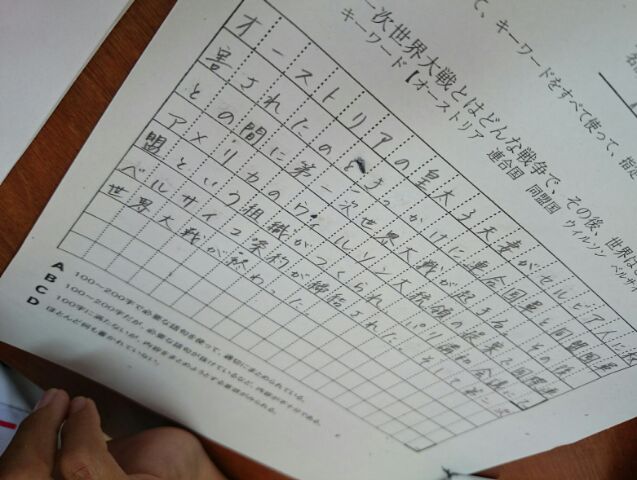 て、キーワードをすべて使って、指定
一次世界大戦とはどんな戦争で、その後、世界は
キーワード【オーストリア　連合国　同盟国　ウイルソン　ベルサ
オーストリアの皇太子夫妻がセルビア人に殺
害されたのをきっかけに連合国軍と同盟国軍
との間に第一次世界大戦が起きる。その後
アメリカのウィルソン大統領の提案で国際連
盟という組織がつくられ、パリ講和会議に
ベルサイユ条約が締結された。そして第一次
世界大戦が終わった。
A 100〜200字で必要な語句を使って、適切にまとめられている。
B 100〜200字だが、必要な語句が抜けているなど、内容が不十分である。
C 100字に満たないが、内容をまとめようとする意欲がみられる。
D ほとんど何も書かれていない。